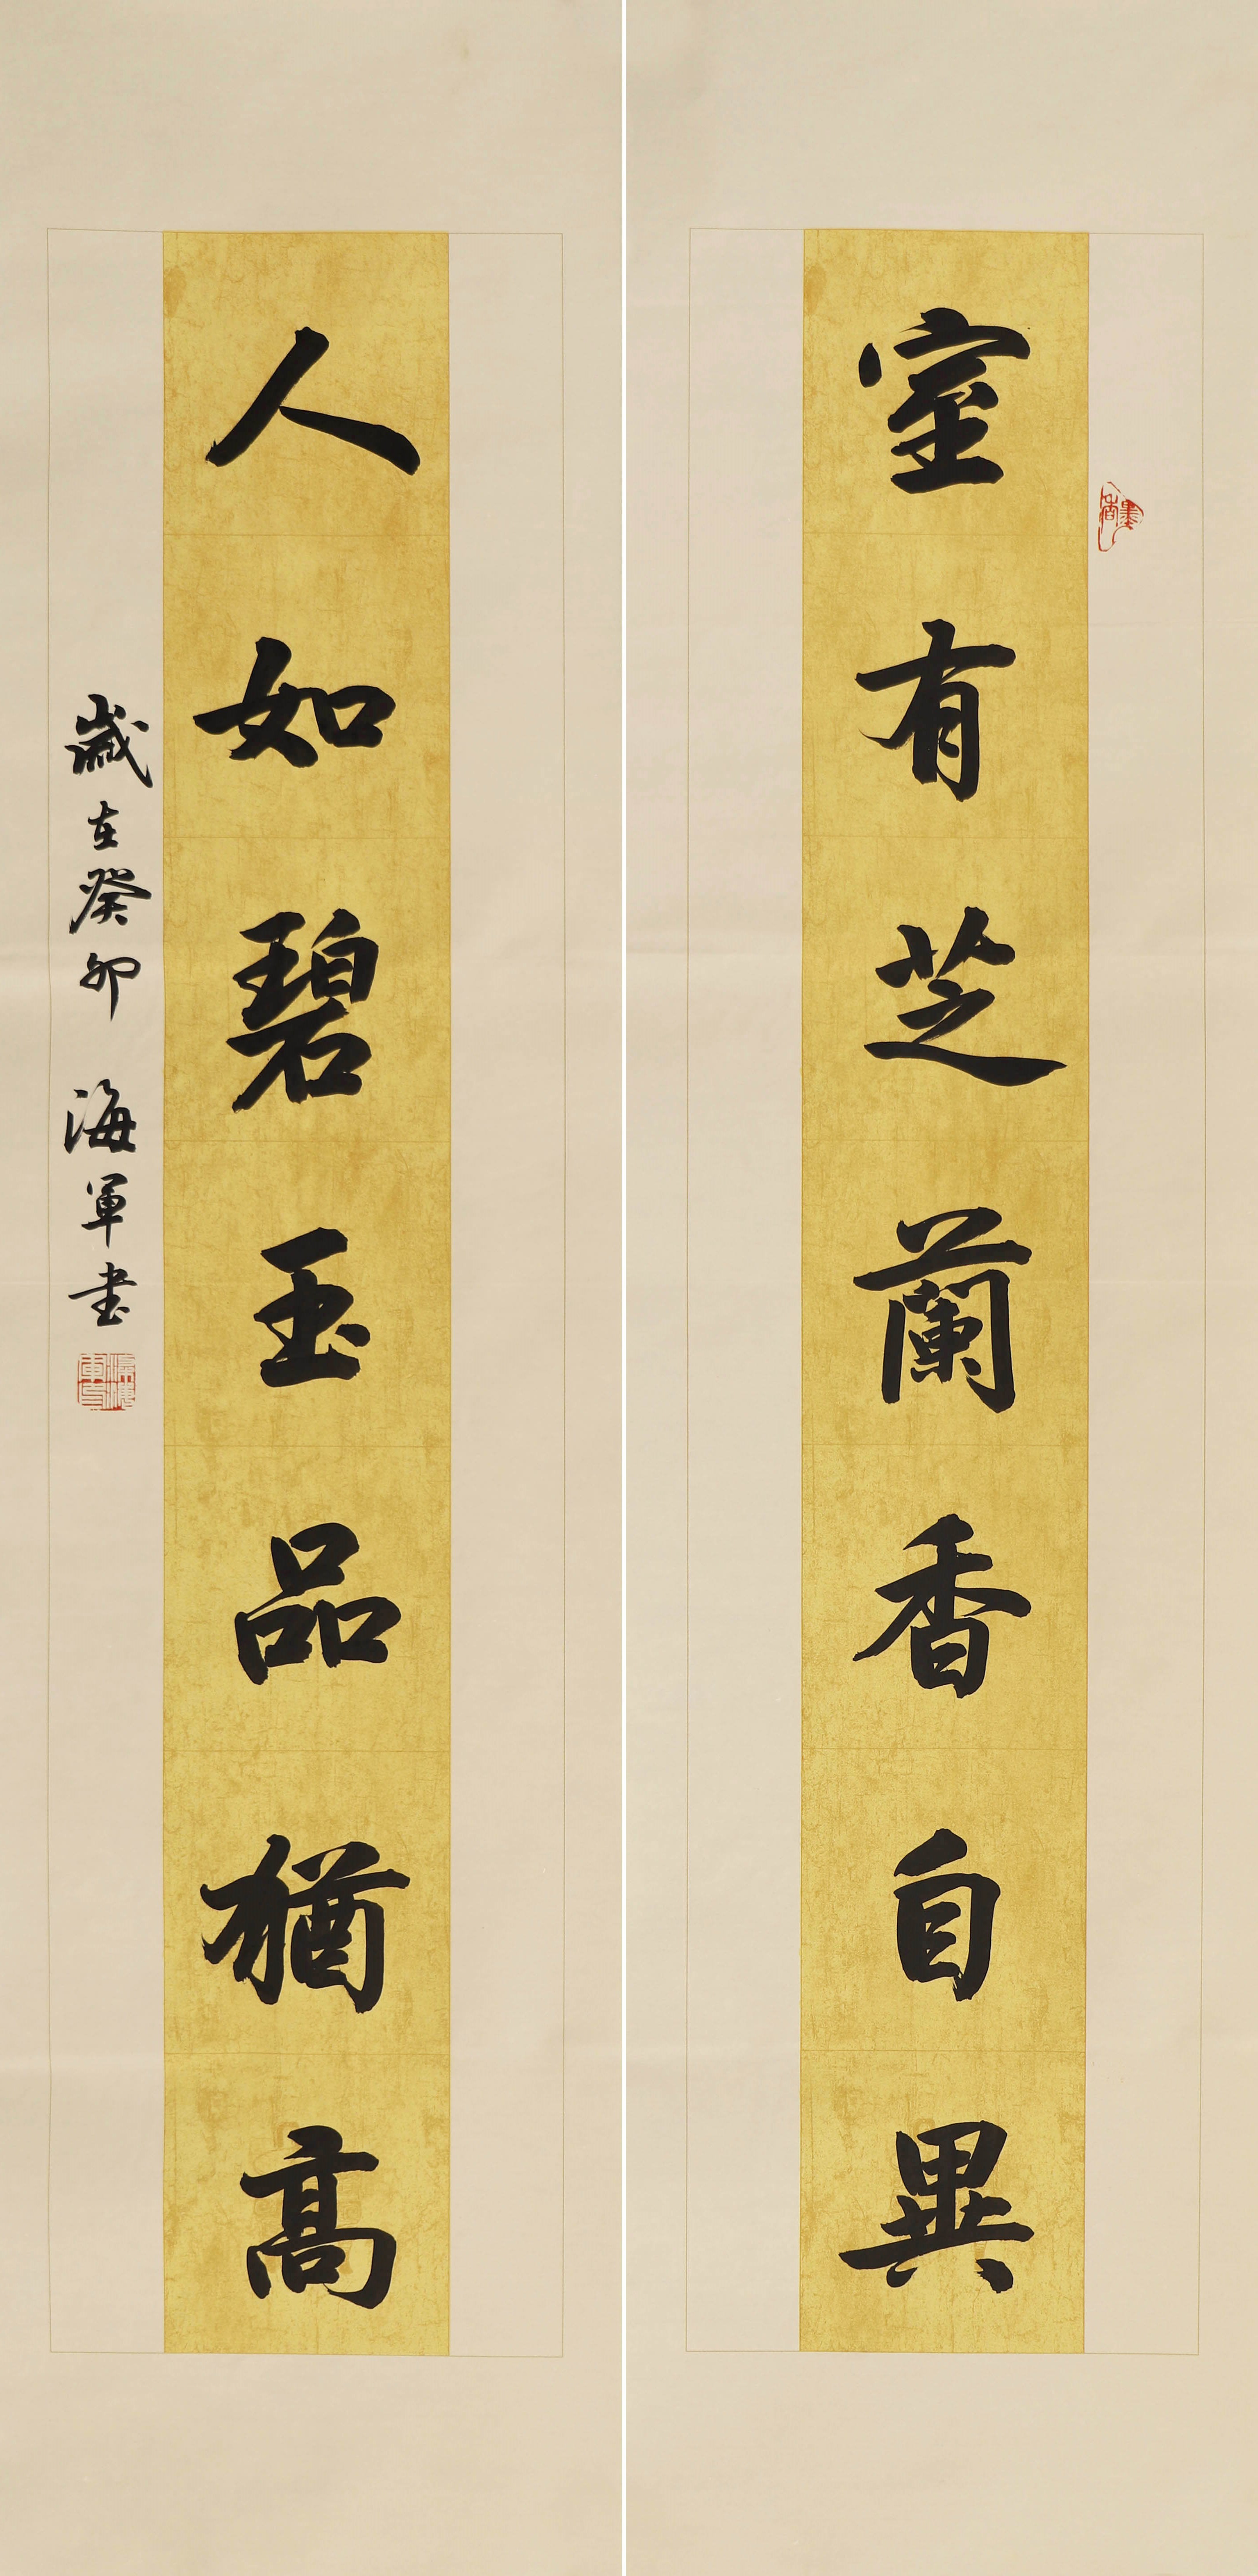 室有芝蘭香自異
墨香
人如碧玉品猶高
歲在癸卯 海軍书